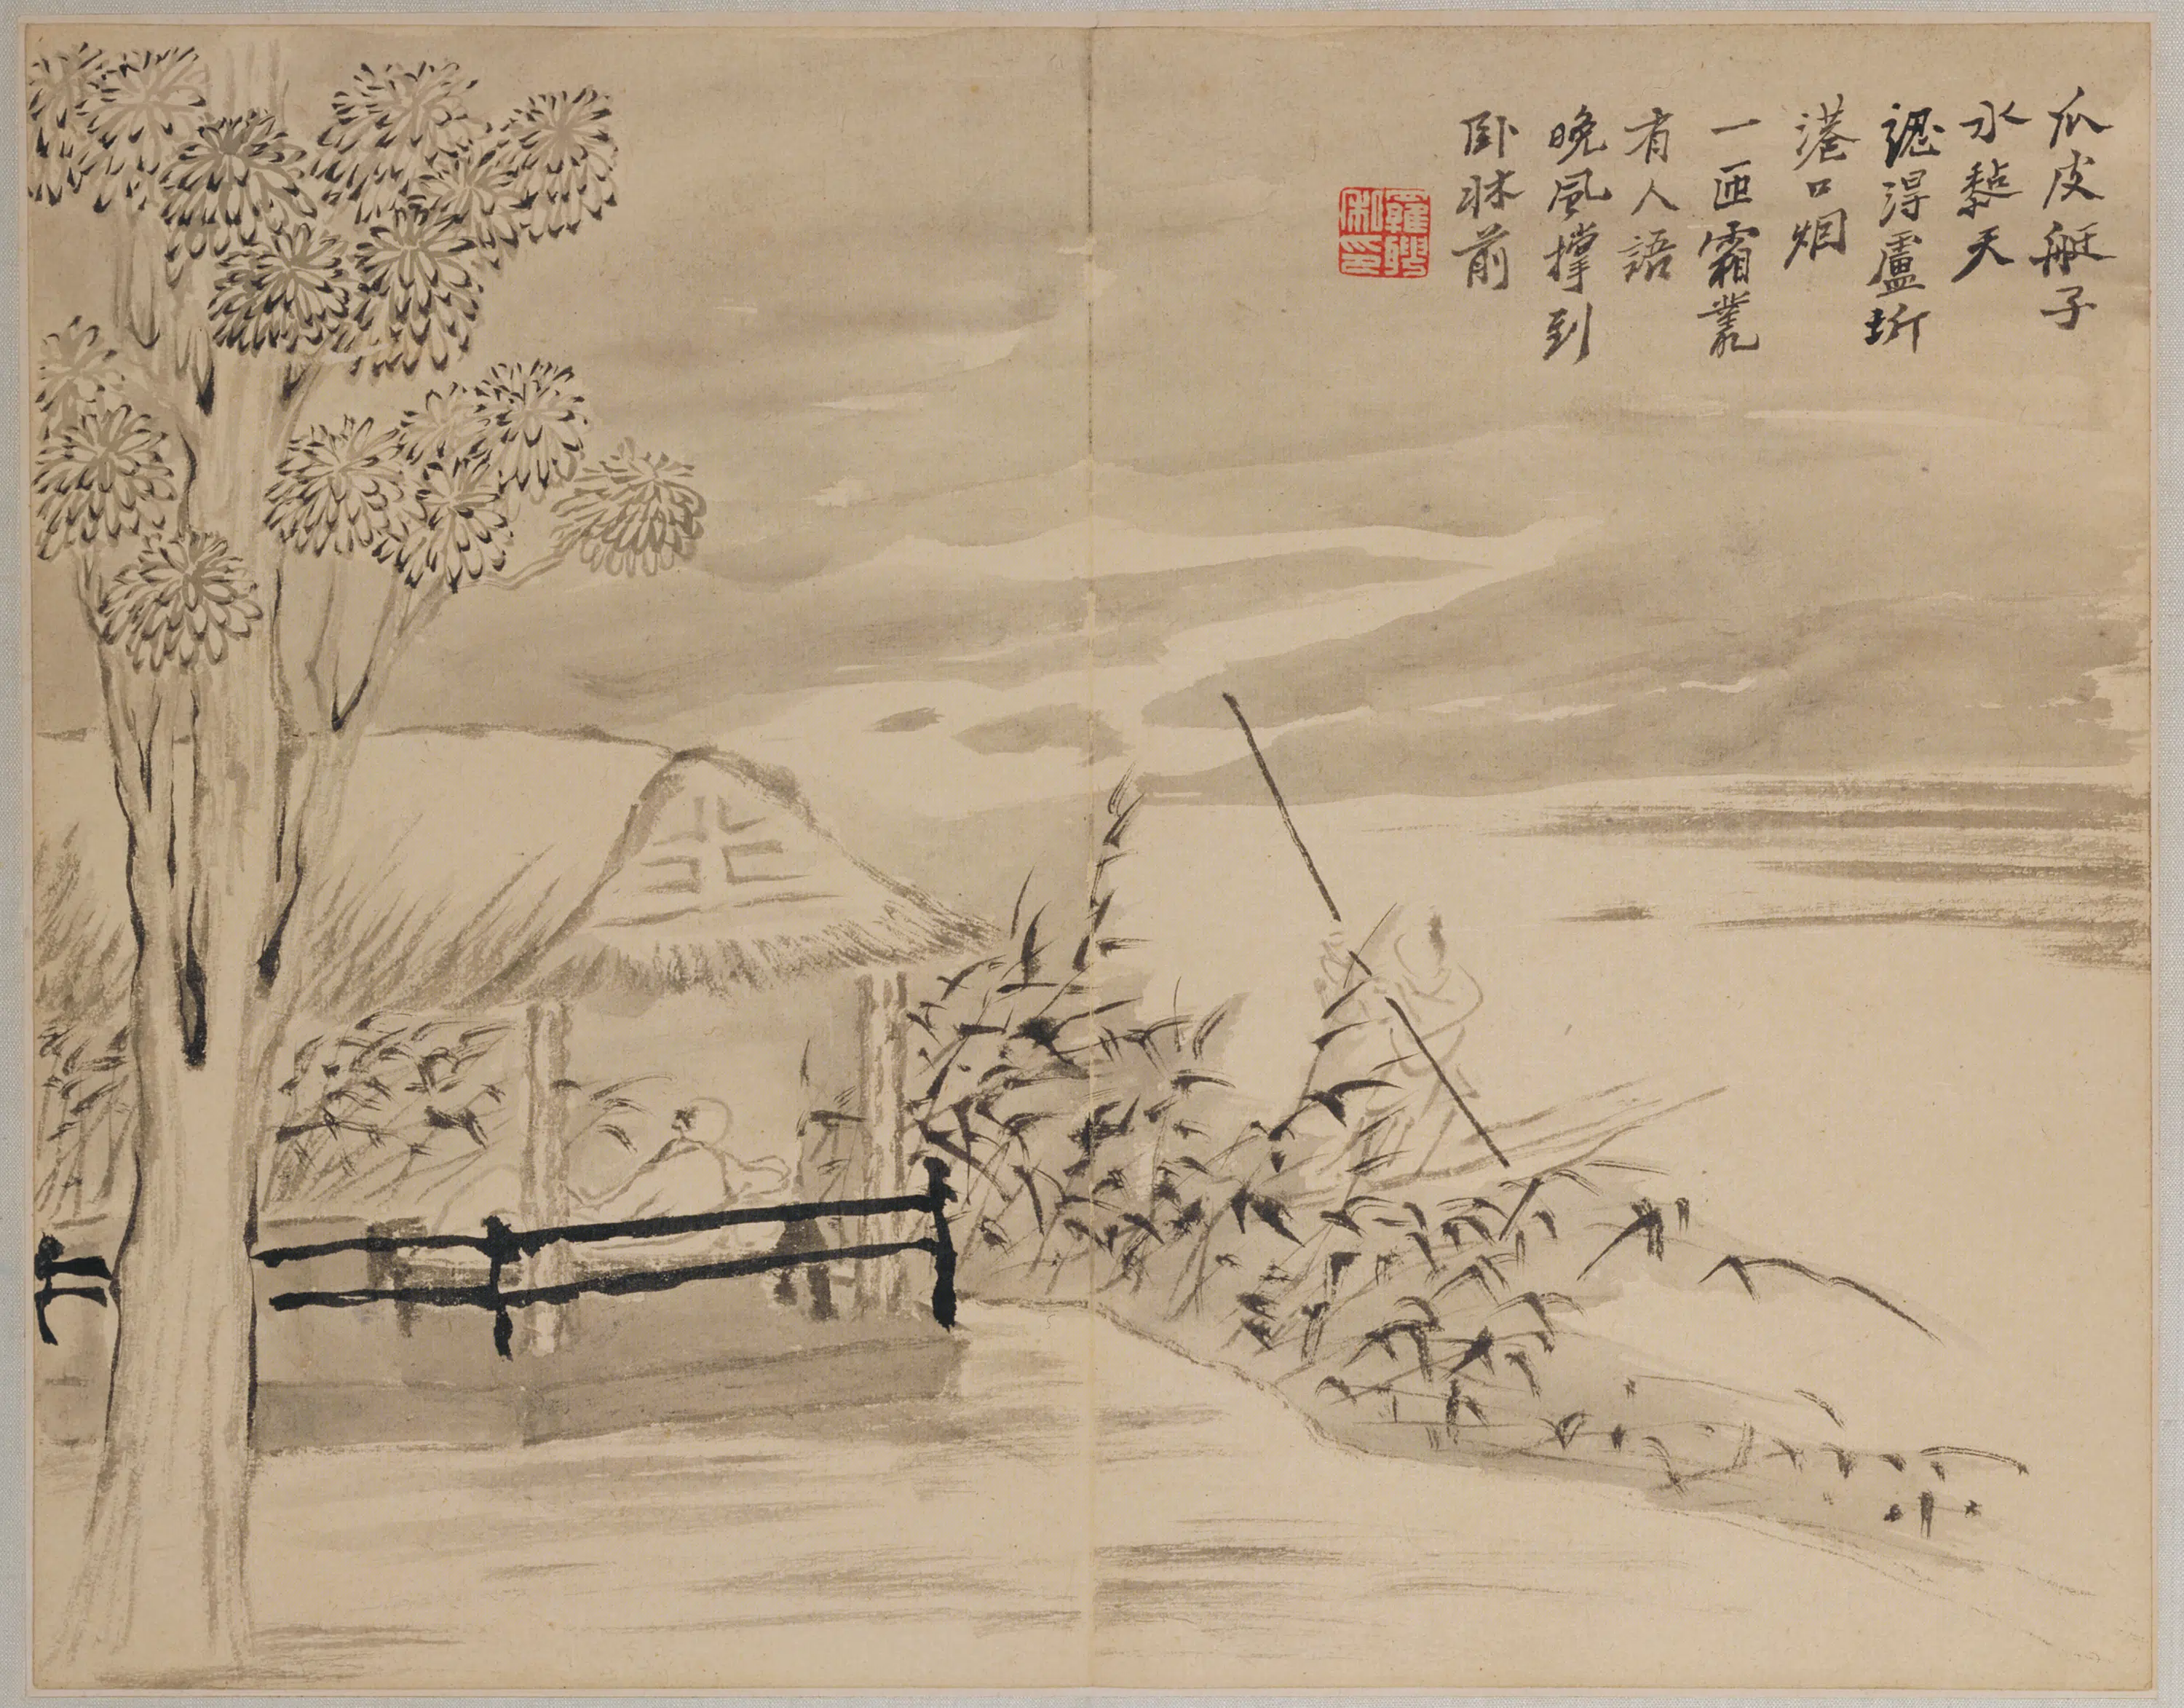 瓜皮艇子
水黏天
認得盧圻
港口烟
一匝霜叢
有人語
晚風撐到
卧牀前
羅聘
私印